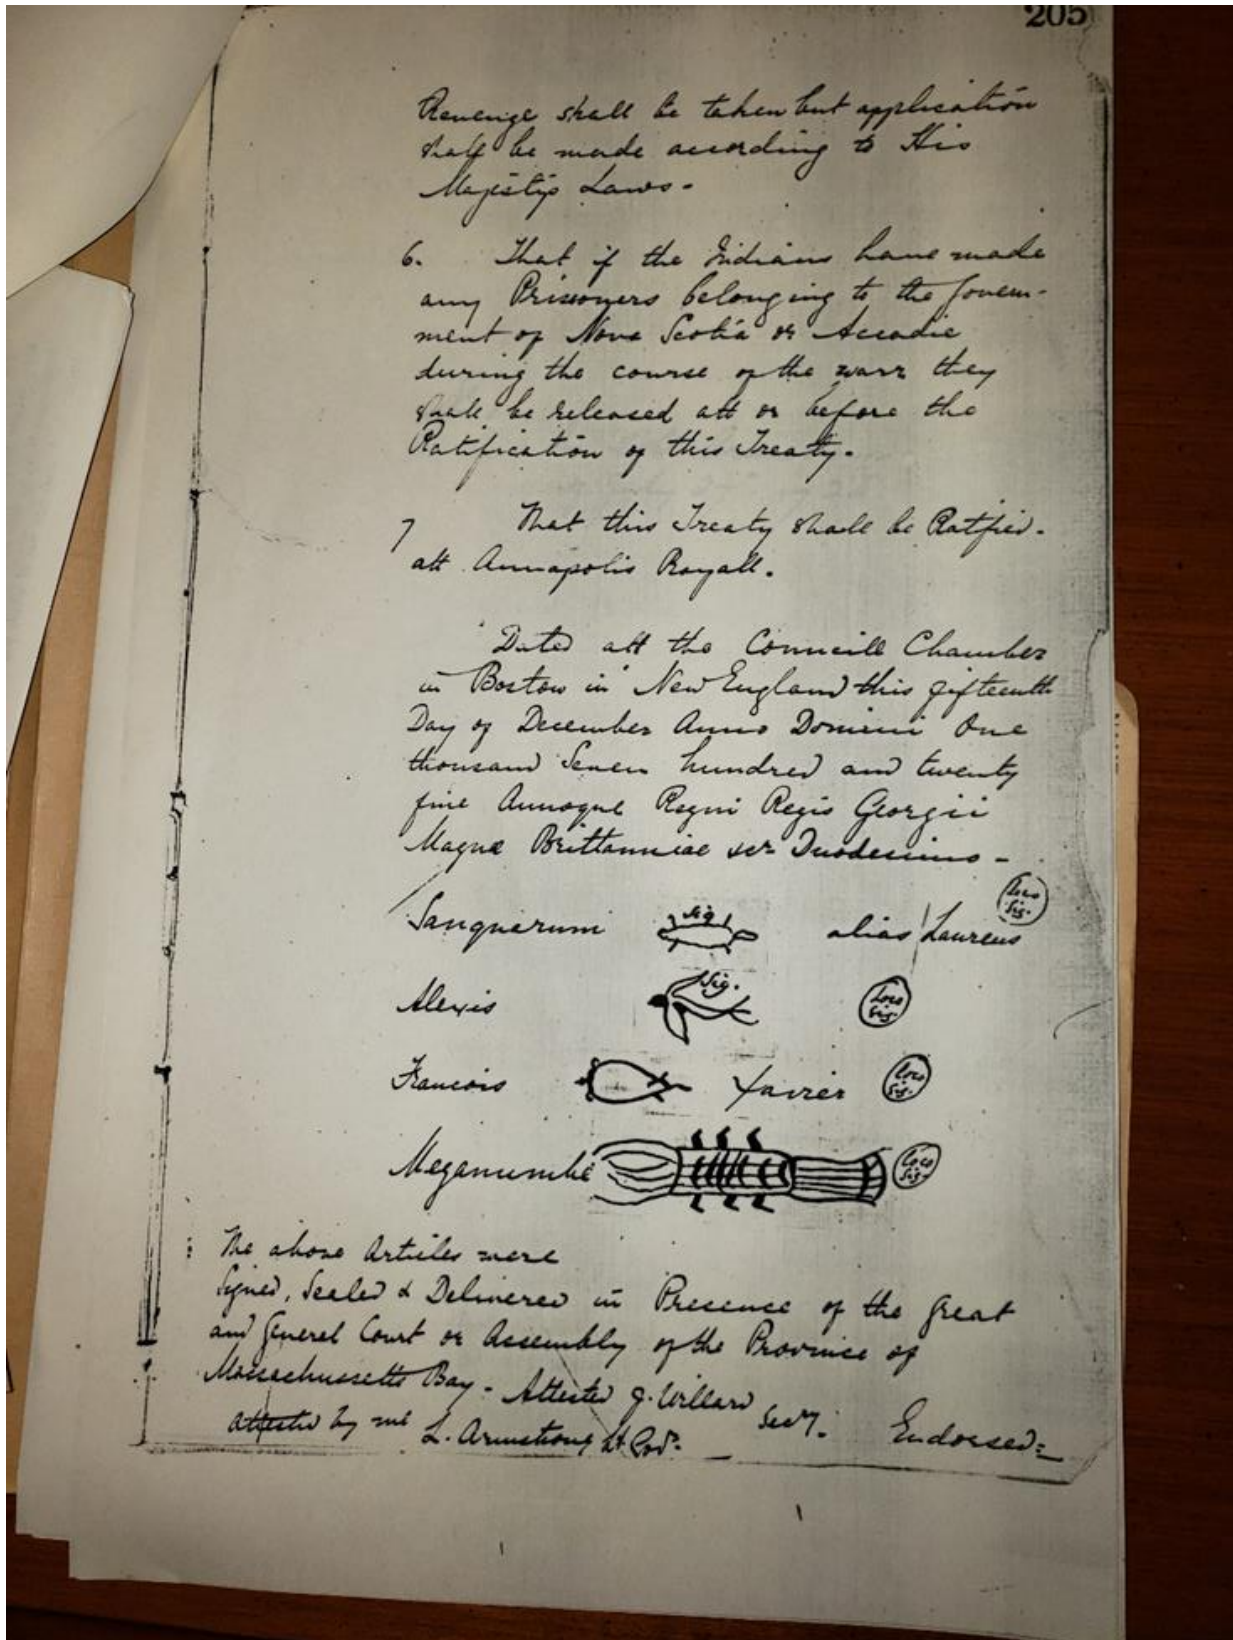 205
Revenge shall be taken but application
shall be made according to His
Majestys Laws-
6. That if the Indians have made
any Prisoners belonging to the Govern-
ment of Nova Scotia or Accadie
during the course of the warr they
shall be released att or before the
Ratification of this Treaty.
7 That this Treaty shall be Ratified
att Annapolis Royall.
Dated att the Councill Chamber
in Boston in New England this fifteenth
Day of December Anno Domini One
thousand Seven hundred and twenty
five Annoque Regni Regis Georgii
Magnæ Brittanniae &c Duodecimo-
Sanquarumi sig alias Laurens Loco Sig.
Alexis Sig. Loco Sig.
Francois Xavier Loco Sig.
Meganumbé Loco Sig.
The above Articles were
Signed, Sealed & Delivered in Presence of the Great
and General Court or Assembly of the Province of
Massachussetts Bay- Attested J. Willard Secry.
attested by me L. Armstrong Lt Govr. Endorsed: